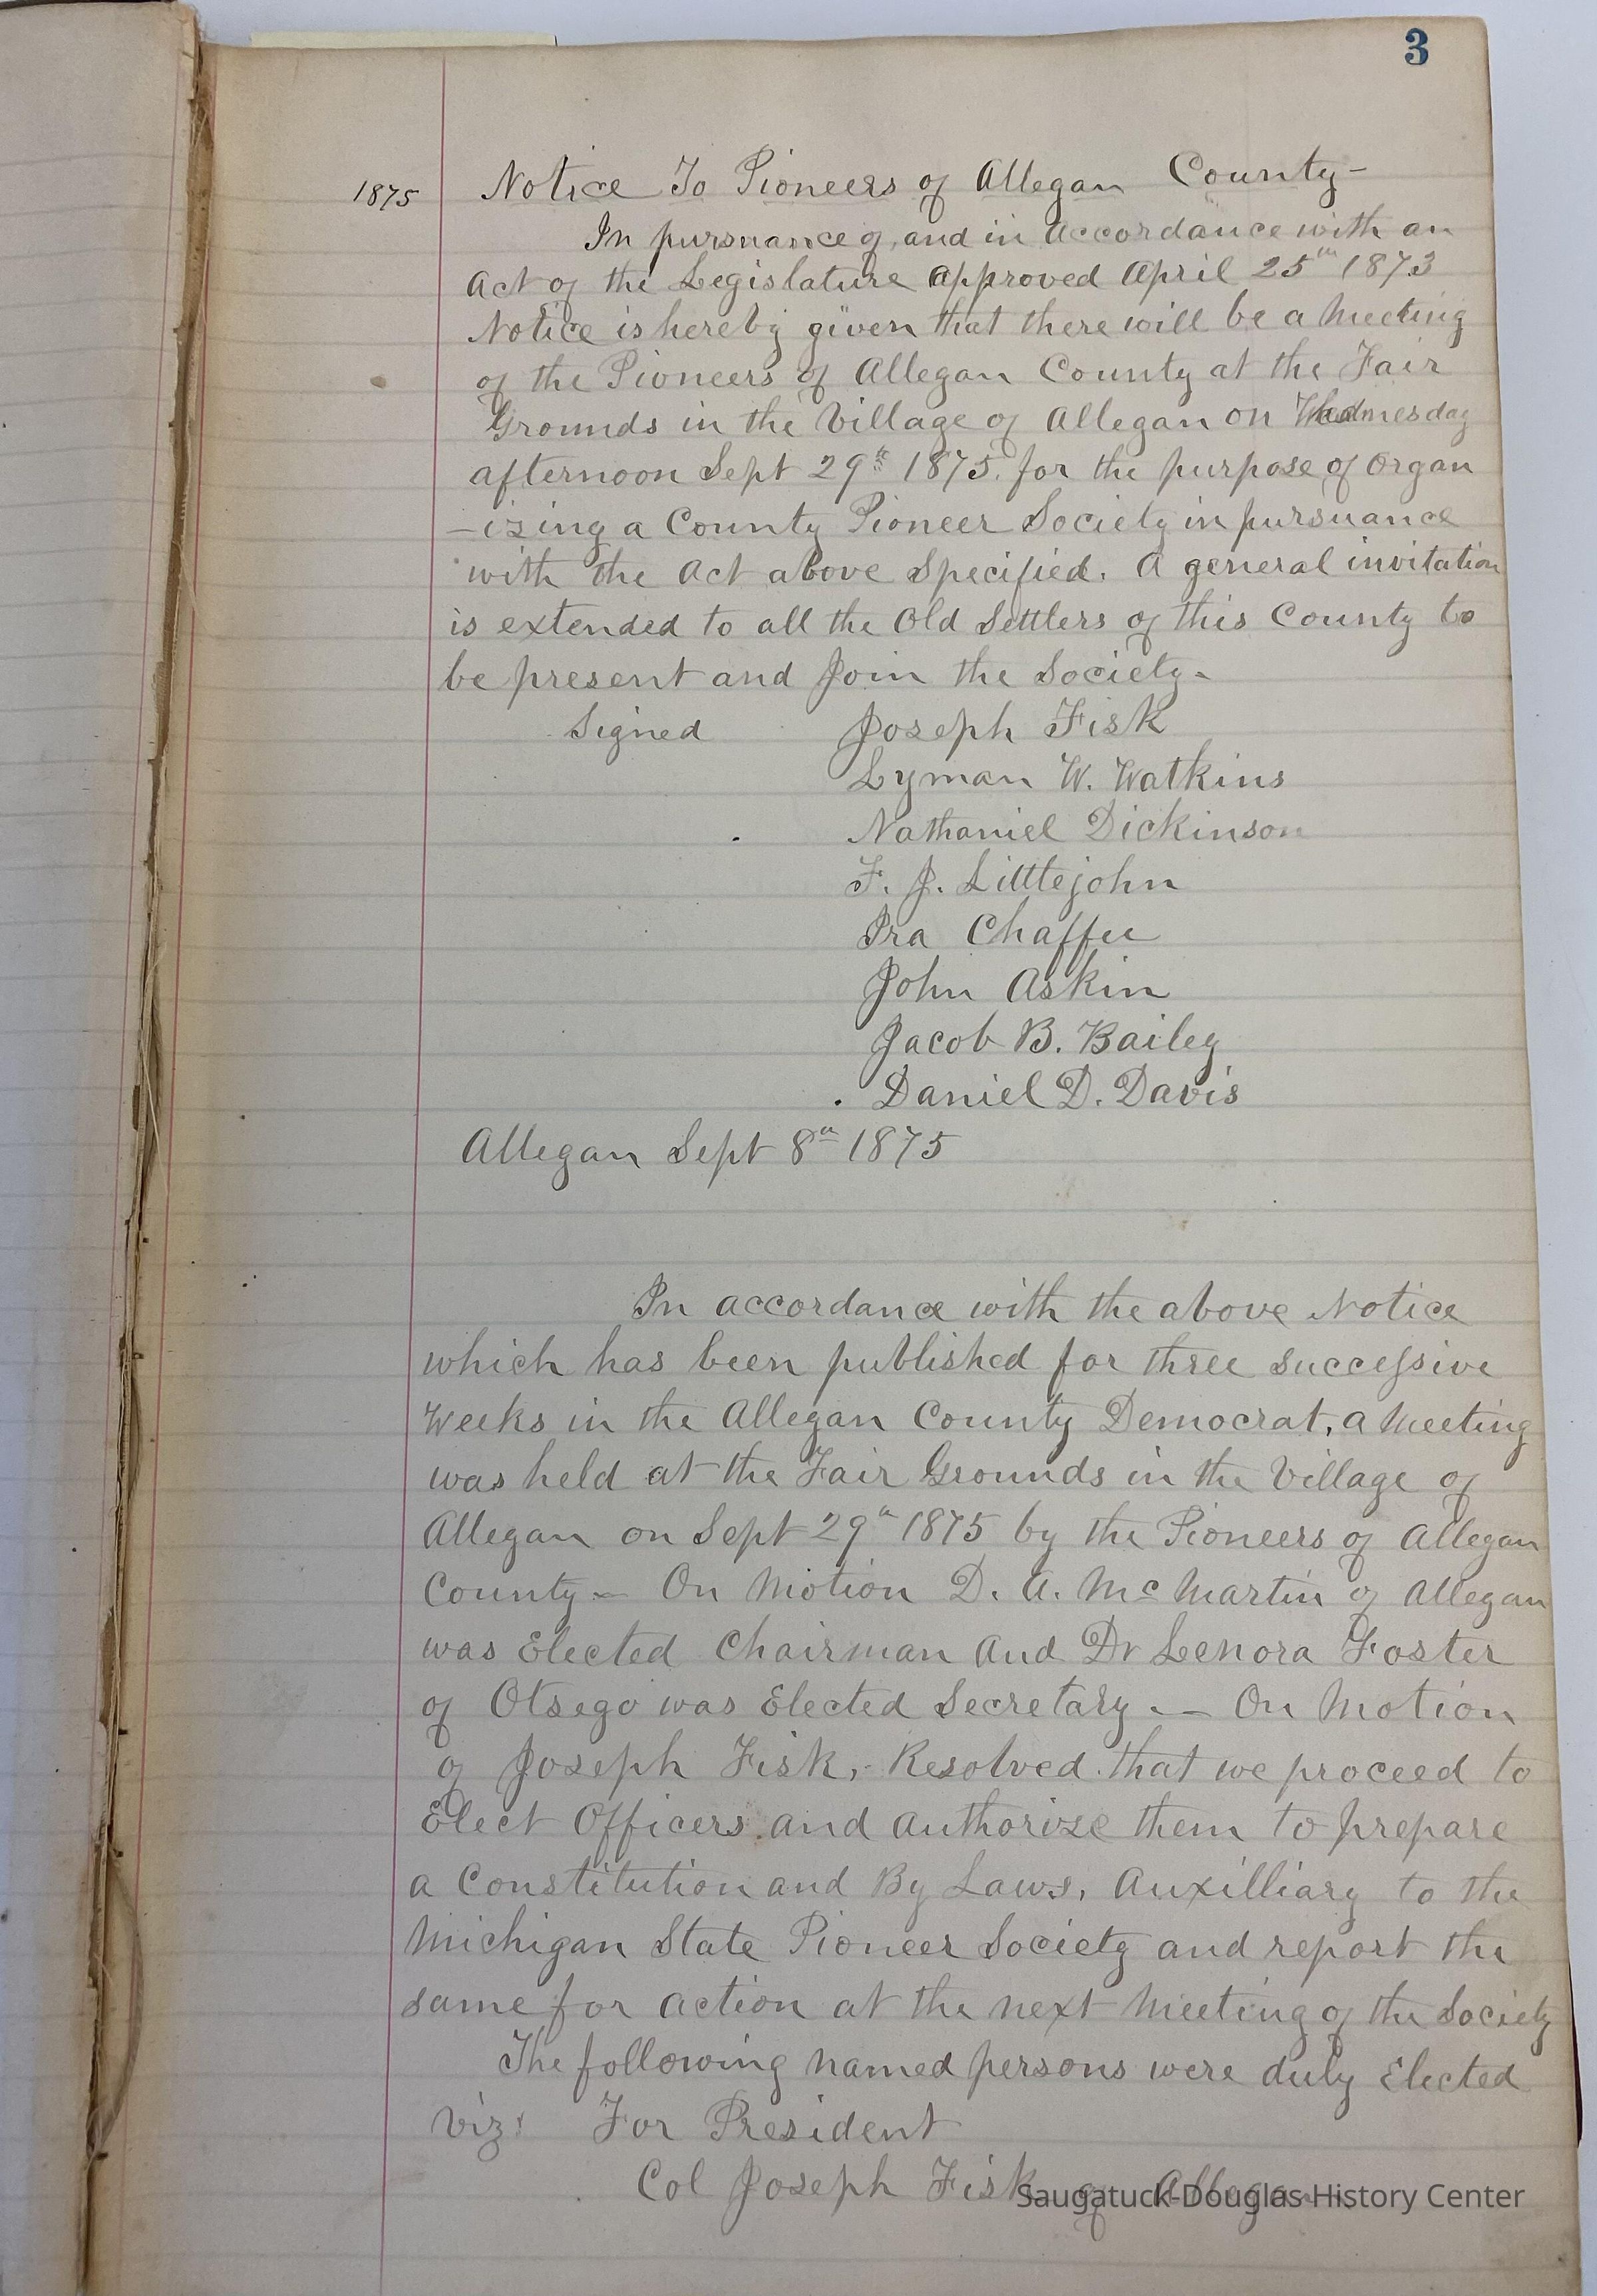 3
1875 Notice To Pioneers of Allegan County-
In pursuance of, and in accordance with an
Act of the Legislature approved April 25th 1873
Notice is hereby given that there will be a Meeting
of the Pioneers of Allegan County at the Fair
Grounds in the Village of Allegan on Wednesday
afternoon Sept 29th 1875. for the purpose of Organ
-izing a County Pioneer Society in pursuance
with the Act above Specified. A general invitation
is extended to all the Old Settlers of this County to
be present and Join the Society-
Signed Joseph Fisk
Lyman W. Watkins
Nathaniel Dickinson
F. J. Littlejohn
Ira Chaffee
John Askin
Jacob B. Bailey
Daniel D. Davis
Allegan Sept 8th 1875
In accordance with the above Notice
which has been published for three successive
Weeks in the Allegan County Democrat, a Meeting
was held at the Fair Grounds in the Village of
Allegan on Sept 29th 1875 by the Pioneers of Allegan
County - On Motion D. A. McMartin of Allegan
was Elected Chairman and Dr Lenora Foster
of Otsego was Elected Secretary. — On Motion
of Joseph Fisk, Resolved that we proceed to
Elect Officers and authorize them to prepare
a Constitution and By Laws, Auxilliary to the
Michigan State Pioneer Society and report the
same for action at the next Meeting of the Society
The following named persons were duly Elected
Viz: For President
Col Joseph Fisk of Allegan
Saugatuck-Douglas History Center